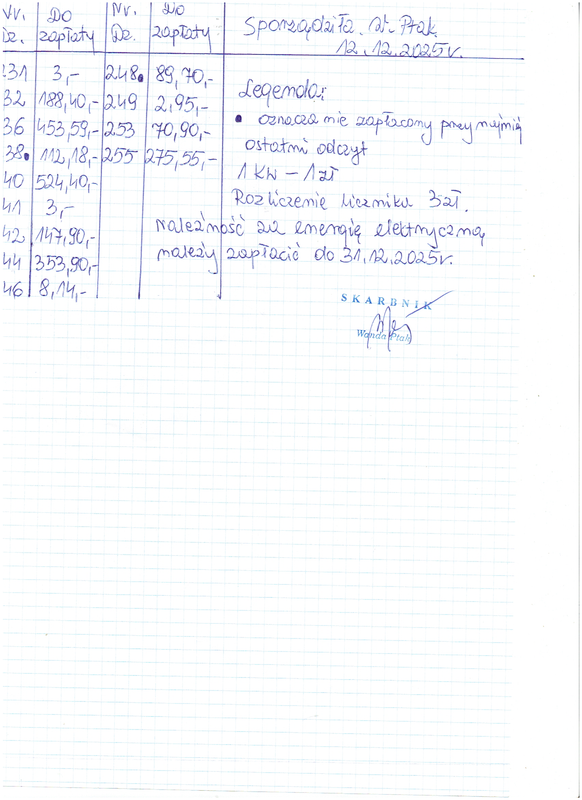 Nr. Do Nr. Do Sporządziła W. Ptak
Dz. zapłaty Dz. zapłaty 12.12.2025r.
131 3,- 248. 89,70,-
32 188,40,- 249 2,95,- Legenda:
36 453,59,- 253 70,90,- • oznacza nie zapłacony przynajmnij
38. 112,18,- 255 275,55,- ostatni odczyt
40 524,40,- 1 KW – 1 zł
41 3,- Rozliczenie licznika 3zł.
42 147,90,- Należność za energię elektryczną
44 353,90,- należy zapłacić do 31.12.2025r.
46 8,14,-
SKARBNIK
Wanda Ptak